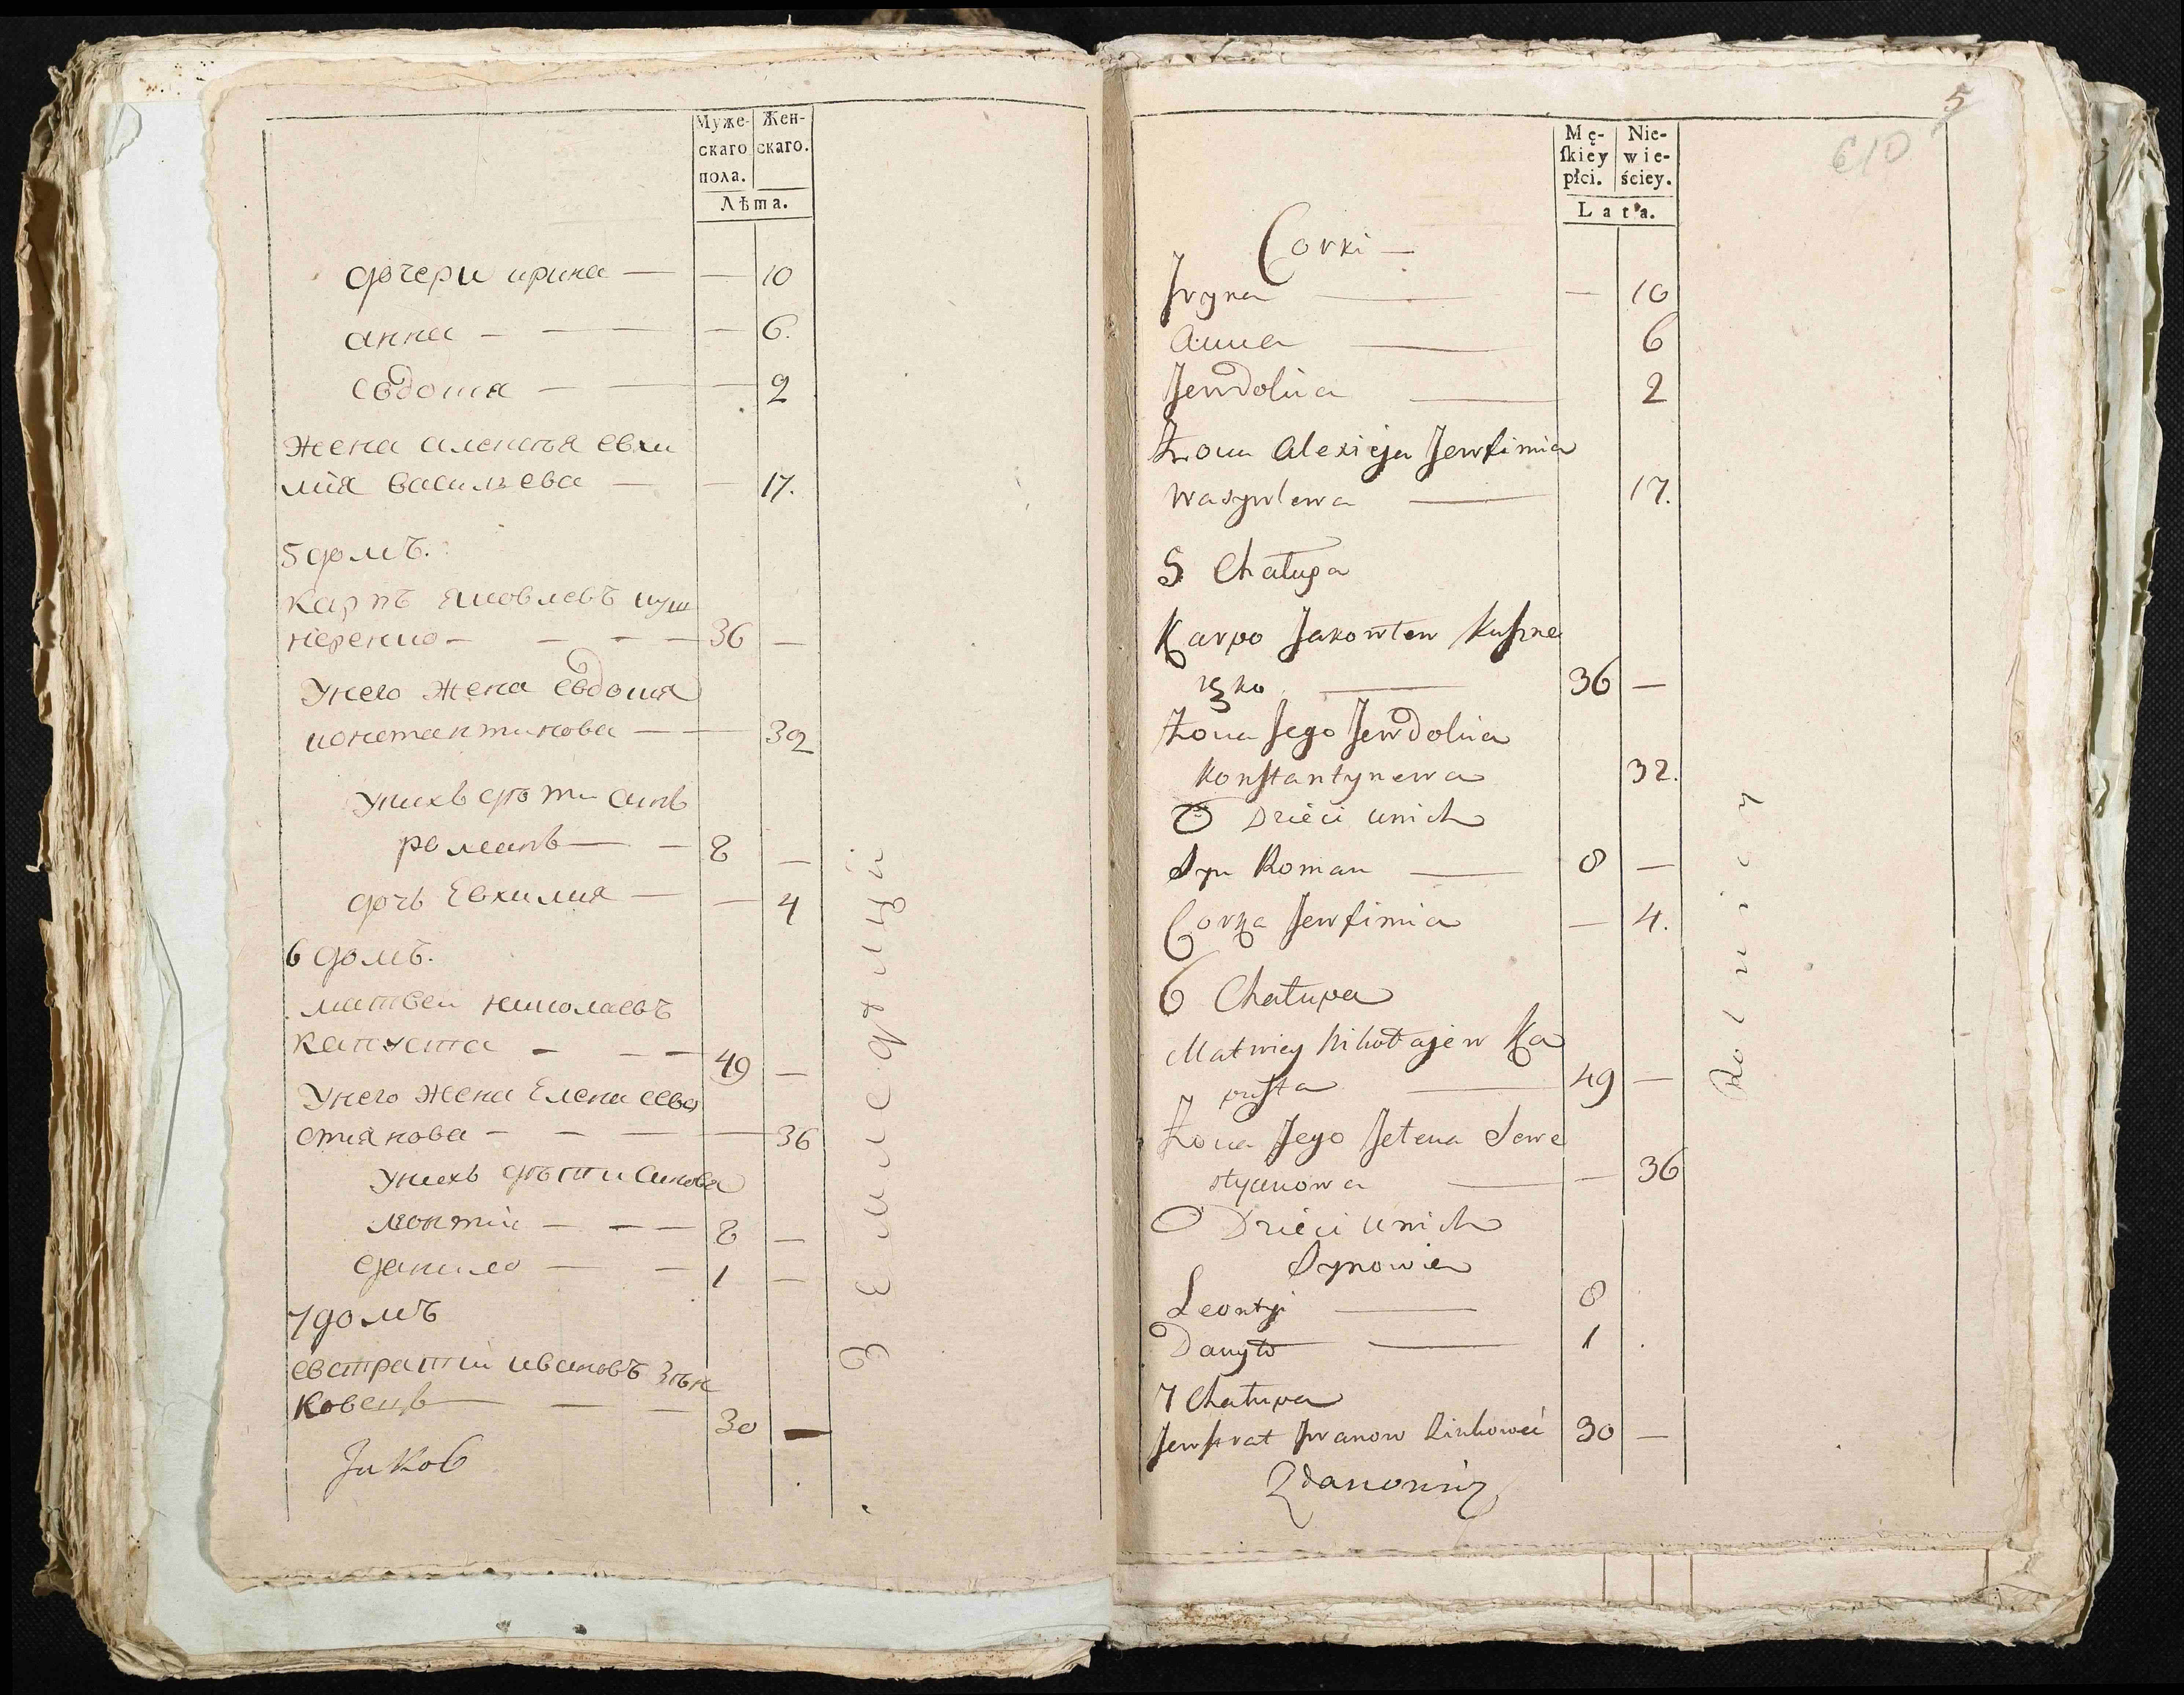 Муже-
скаго
пола.
Жен-
скаго.
Лѣта.
дочери ирина — — 10
анна — — — 6.
Евдокия — — — 2
жена алексѣя евхи
мия васильева — — 17.
5 домъ.
карпъ яковлевъ куш
неренко — — — — 36 —
Унего жена Евдокия
константинова — — 32
Унихъ дѣти синъ
романъ — — 8 —
дочь Евхимия — — 4
6 домъ.
матвеи николаевъ
капуста — — — 49 —
Унего жена Елена сева
стиянова — — — 36
Унихъ дѣти синова
леонтий — — — 8 —
данило — — 1 —
7 домъ
евстратий ивановъ Зѣн
ковецъ — — — 30 —
Яков
Землѣдѣлцы
5
610
Mę-
skiey
płci.
Nie-
wie-
ściey.
Lata.
Corki —
Iryna — — 10
Anna — 6
Jewdokia — 2
Żona Alexieja Jewfimia
Wasylewa — 17.
5 Chałupa
Karpo Jakowlew Kuszne
rzko — 36 —
Żona Jego Jewdokia
Konstantynowa 32.
Dzieci unich
Syn Roman — 8 —
Corka Jewfimia — 4.
6 Chałupa
Matwiey Nikołajew Ka
pusta — 49 —
Żona Jego Jełena Sewe
styanowa — — 36
Dzieci unich
Synowie
Leontyi — 8
Danyło — 1
7 Chałupa
Jewstrat Iwanow Zinkoweć 30 —
Zdanowicz
Rolnicy